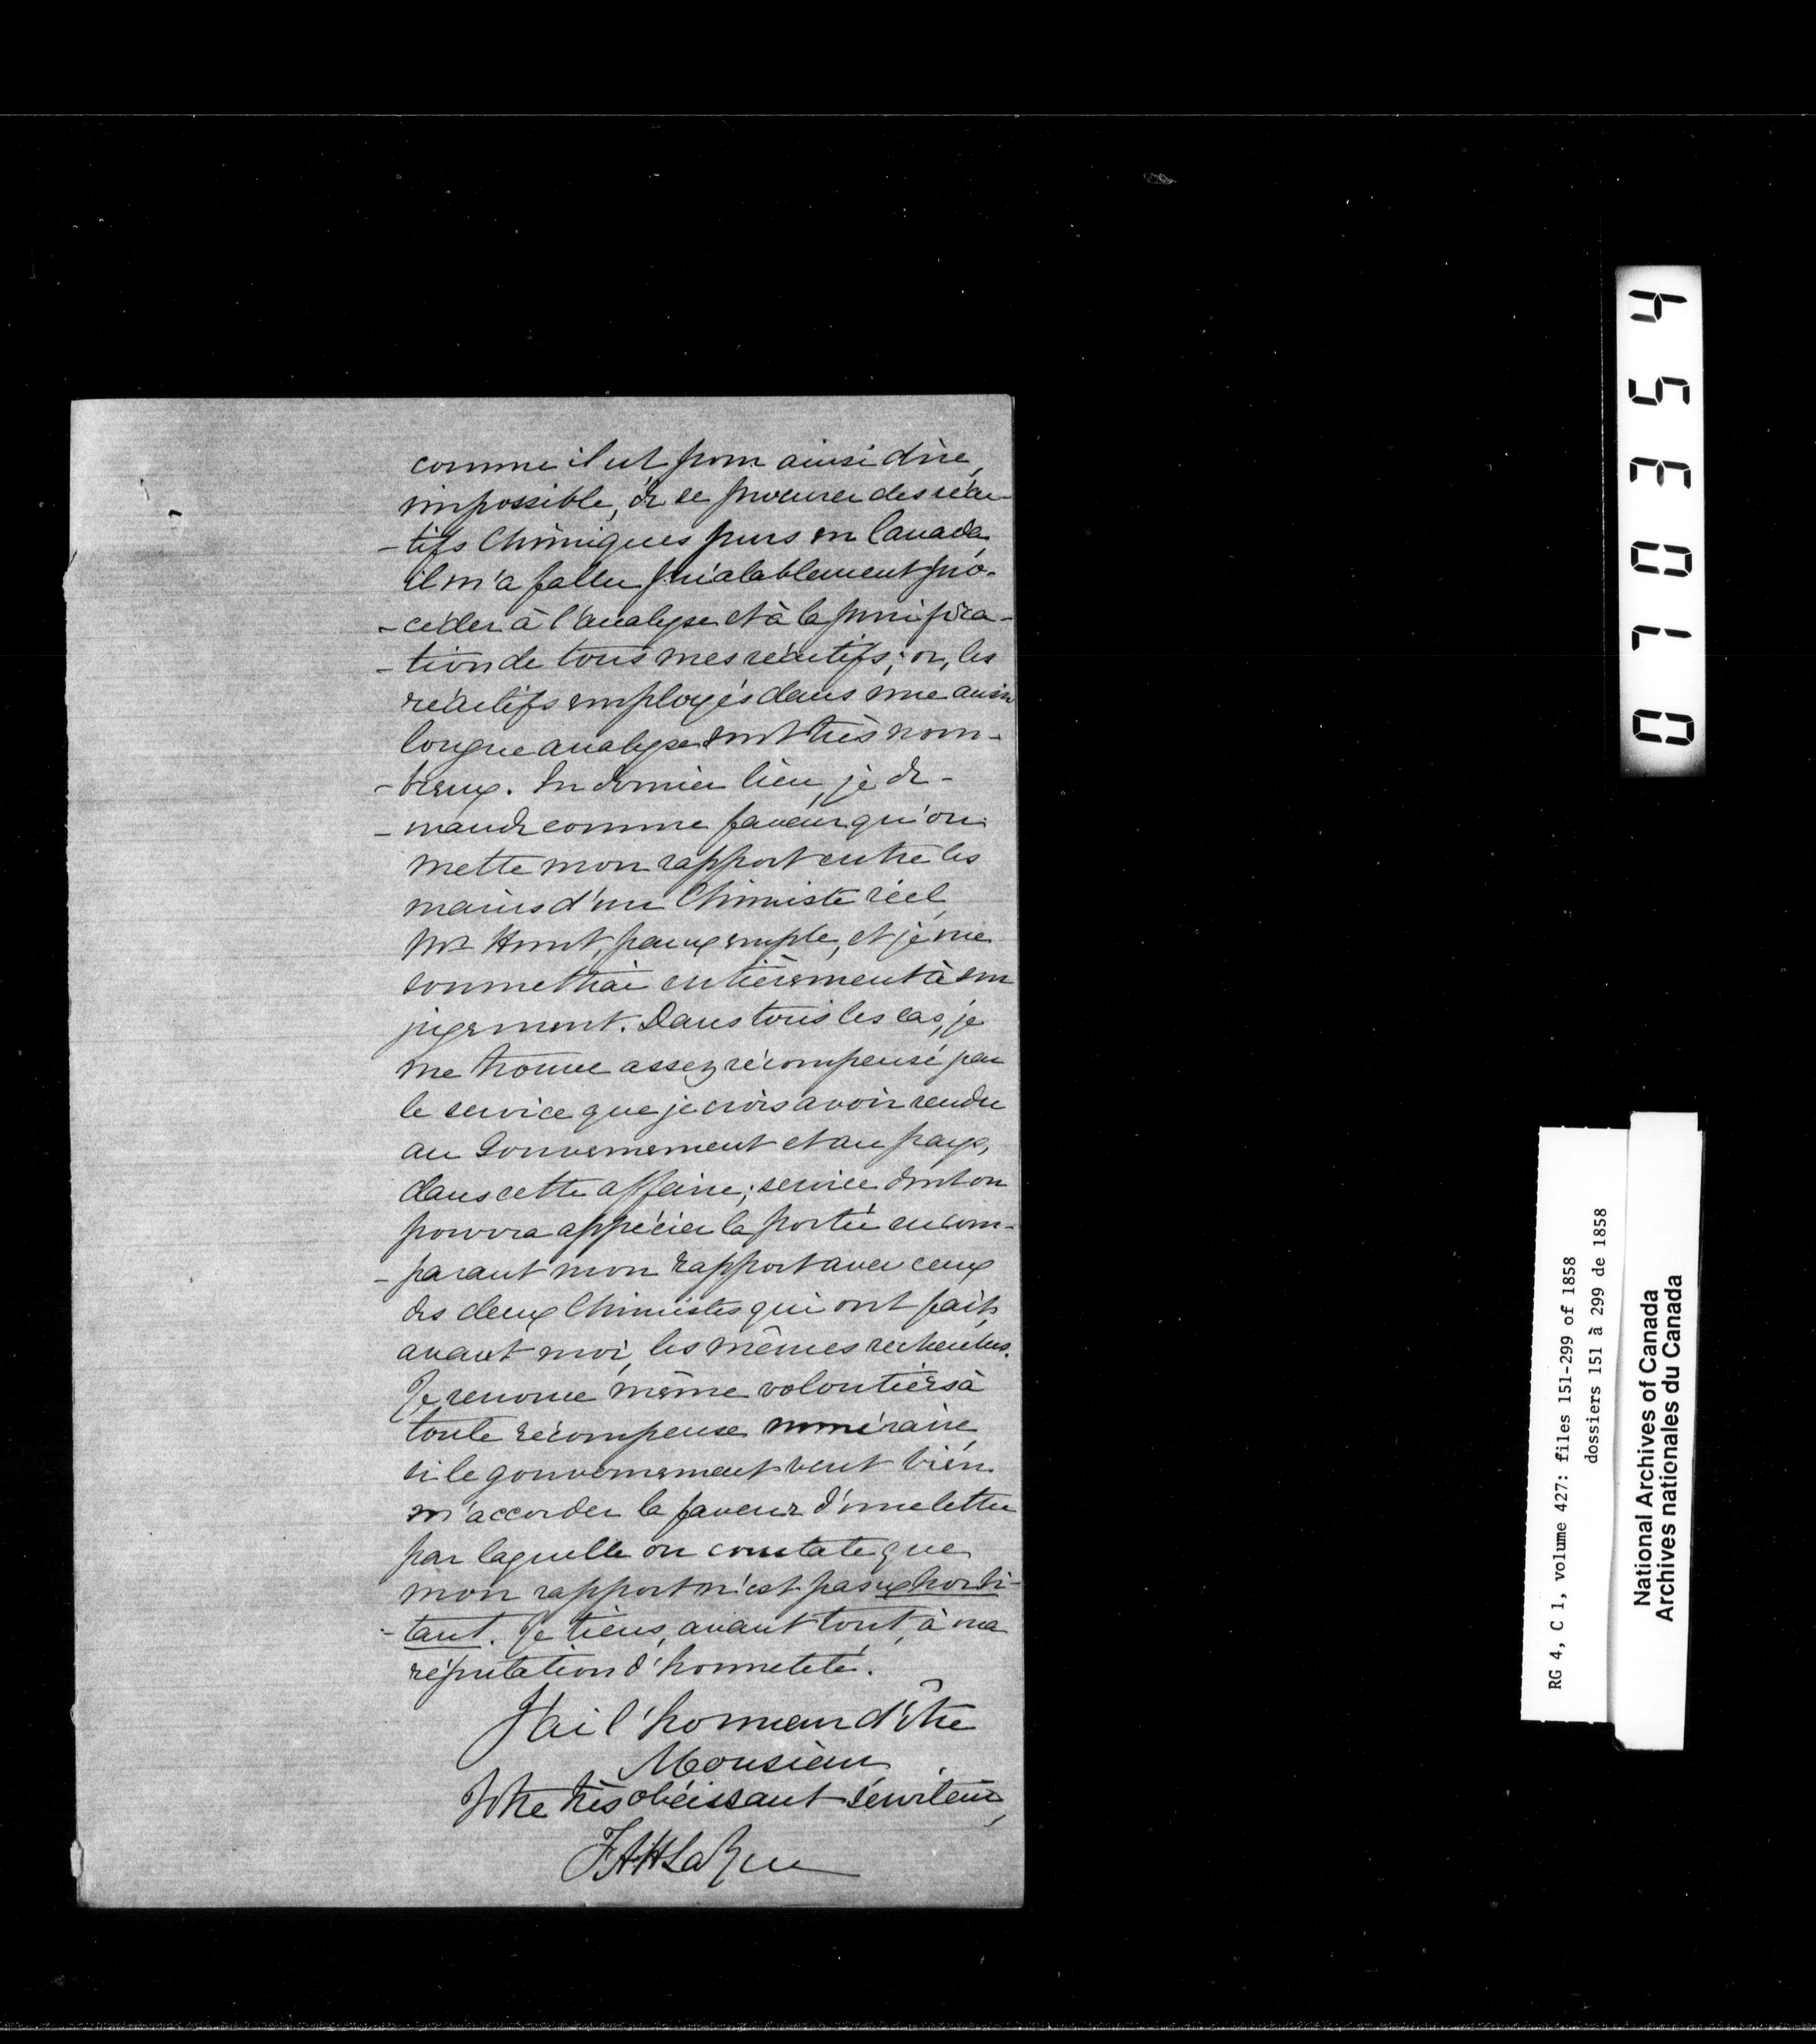 comme il est pour ainsi dire,
impossible, de se procurer des réac-
-tifs Chimiques purs en Canada,
il m'a fallu préalablement pro-
-céder à l'analyse et à la purifica-
-tion de tous mes réactifs; or, les
réactifs employés dans une aussi
longue analyse sont très nom-
-breux. En dernier lieu, je de-
-mande comme faveur qu'on
mette mon rapport entre les
mains d'un Chimiste réel,
Mr Hunt, par exemple, et je me
soumettrai entièrement à son
jugement. Dans tous les cas, je
me trouve assez récompensé par
le service que je crois avoir rendu
au Gouvernement et au pays,
dans cette affaire; service dont on
pourra apprécier la portée en com-
-parant mon rapport avec ceux
des deux Chimistes qui ont fait,
avant moi, les mêmes recherches.
Je renonce même volontiers à
toute récompense numéraire,
si le gouvernement veut bien
m'accorder la faveur d'une lettre
par laquelle on constate que
mon rapport n'est pas exhorbi-
-tant. Je tiens, avant tout, à ma
réputation d'honneteté.
J'ai l'honneur d'être
Monsieur,
Votre très obéissant serviteur,
F.A.H. LaRue
0710354
RG 4, C 1, volume 427: files 151-299 of 1858
dossiers 151 à 299 de 1858
National Archives of Canada
Archives nationales du Canada